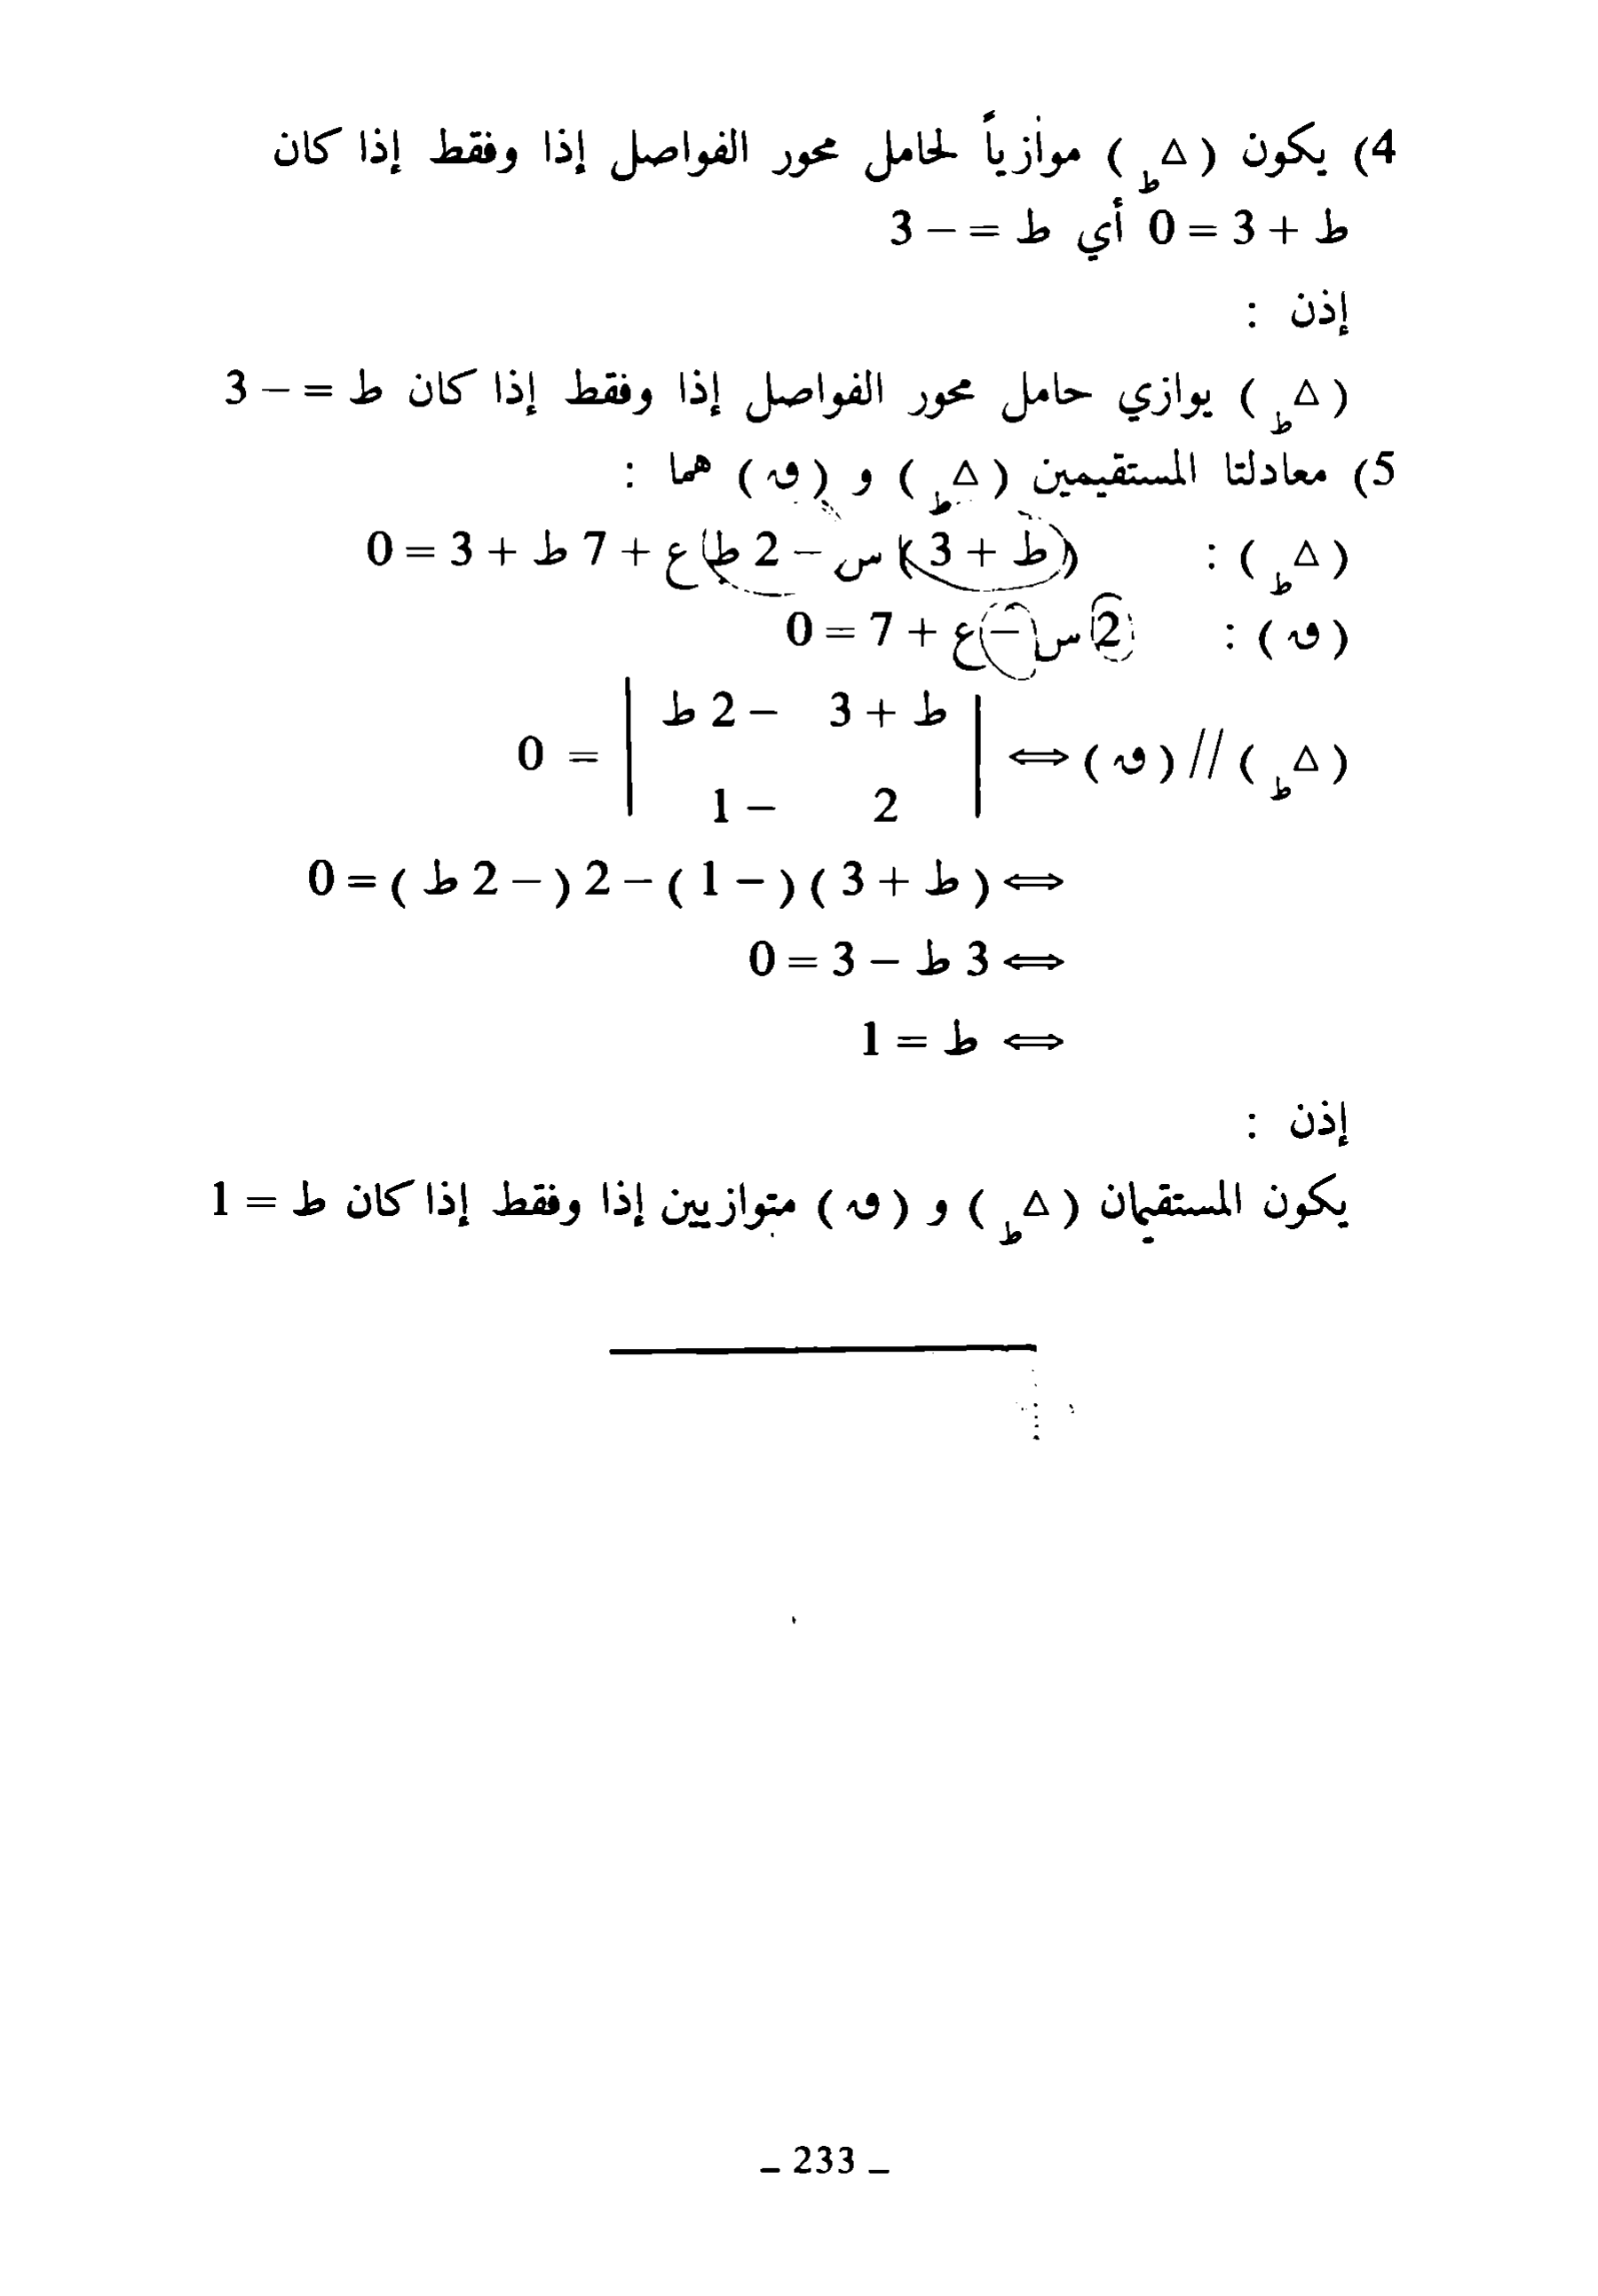 4) يكون ( △ط ) موازياً لحامل محور الفواصل إذا وفقط إذا كان
ط + 3 = 0 أي ط = − 3
إذن :
( △ط ) يوازي حامل محور الفواصل إذا وفقط إذا كان ط = − 3
5) معادلتا المستقيمين ( △ط ) و ( ق ) هما :
( △ط ) : (ط + 3) س − 2 ط ع + 7 ط + 3 = 0
( ق ) : 2 س − ع + 7 = 0
ط + 3 − 2 ط
( △ط ) // ( ق ) ⟺ | | = 0
2 − 1
⟺ ( ط + 3 ) ( − 1 ) − 2 ( − 2 ط ) = 0
⟺ 3 ط − 3 = 0
⟺ ط = 1
إذن :
يكون المستقيمان ( △ط ) و ( ق ) متوازيين إذا وفقط إذا كان ط = 1
– 233 –